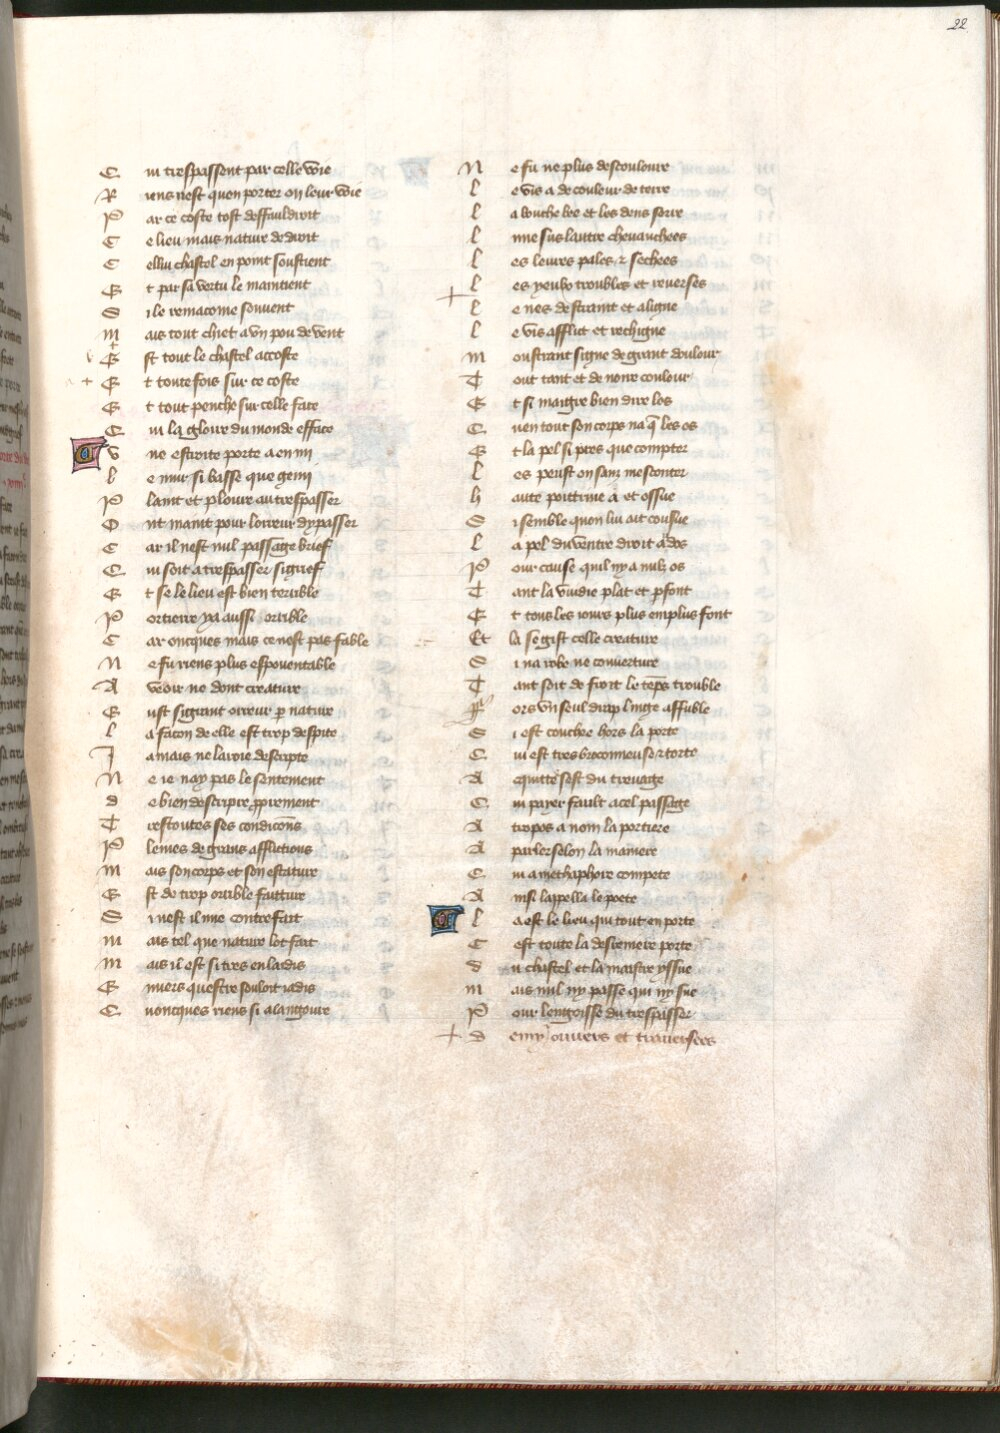 22
C ui trespassent par celle voie
R iens nest quon porter on leur voie
P ar ce coste tost deffauldroit
C e lieu mais nature de droit
C elluy chastel en point soustient
E t par sa vertu le maintient
S i le remacome souuent
M ais tout chiet a vn pou de vent
E st tout le chastel accoste
E t toutefois sur ce coste
E t tout penche sur celle face
C ui la gloire du monde efface
V ne estroite porte a en mi
L e mur si basse que gemi
P laint et ploure au trespasser
O nt maint pour lorreur dy passer
C ar il nest nul passage brief
C ui soit a trespasser si grief
E t se le lieu est bien terrible
P ortiere ya aussi orrible
C ar oncques mais ce nest pas fable
N e fu riens plus espouentable
A veoir ne dont creature
E ust si grant orreur p nature
L a facon de elle est trop despite
J amais ne lauroie descripte
N e ie nay pas le sentement
D e bien descripre pprement
T restoutes ses condicons
P leines de grans afflictions
M ais son corps et son estature
E st de trop orrible faitture
S i nest il mie contrefait
M ais tel que nature lot fait
M ais il est si tres enlaidis
E nuers questre souloit iadis
C uoncques riens si alangoure
N e fu ne plus descouloure
L e vis a de couleur de terre
L a bouche bee et les dens serre
L une sus lautre cheuauchees
L es leures pales & sechees
L es yeulx troubles et reuerses
L e nes destraint et aligne
L e vis afflit et rechigne
M onstrant signe de grant douleur
T out tant et de noire couleur
E t si maigre bien dire los
C uen tout son corps na q les os
E t la pel si pres que compter
L es peust on sanz mesconter
H aute poittrine a et ossue
S i semble quon lui ait cousue
L a pel du ventre droit a dos
P our cause quil ny a nulz os
T ant la vuidie plat et pfont
E t tous les iours plus emplus font
Et la se gist celle creature
S i na robe ne couuerture
T ant soit de froit le teps trouble
F ors vn seul drap linge affuble
S i est couchee hors la porte
C ui est tres broconneuse & torte
A cquitte sest du treuage
C ui payer fault a cel passage
A tropos a nom la portiere
A parler selon la maniere
C ui a methaphore compete
A insi lappella le poete
L a est le lieu qui tout en porte
C est toute la desreniere porte
D u chastel et la maistre yssue
M ais nul ny passe qui ny sue
P our lengoisse du trespasser
D emy ouuers et trauersees